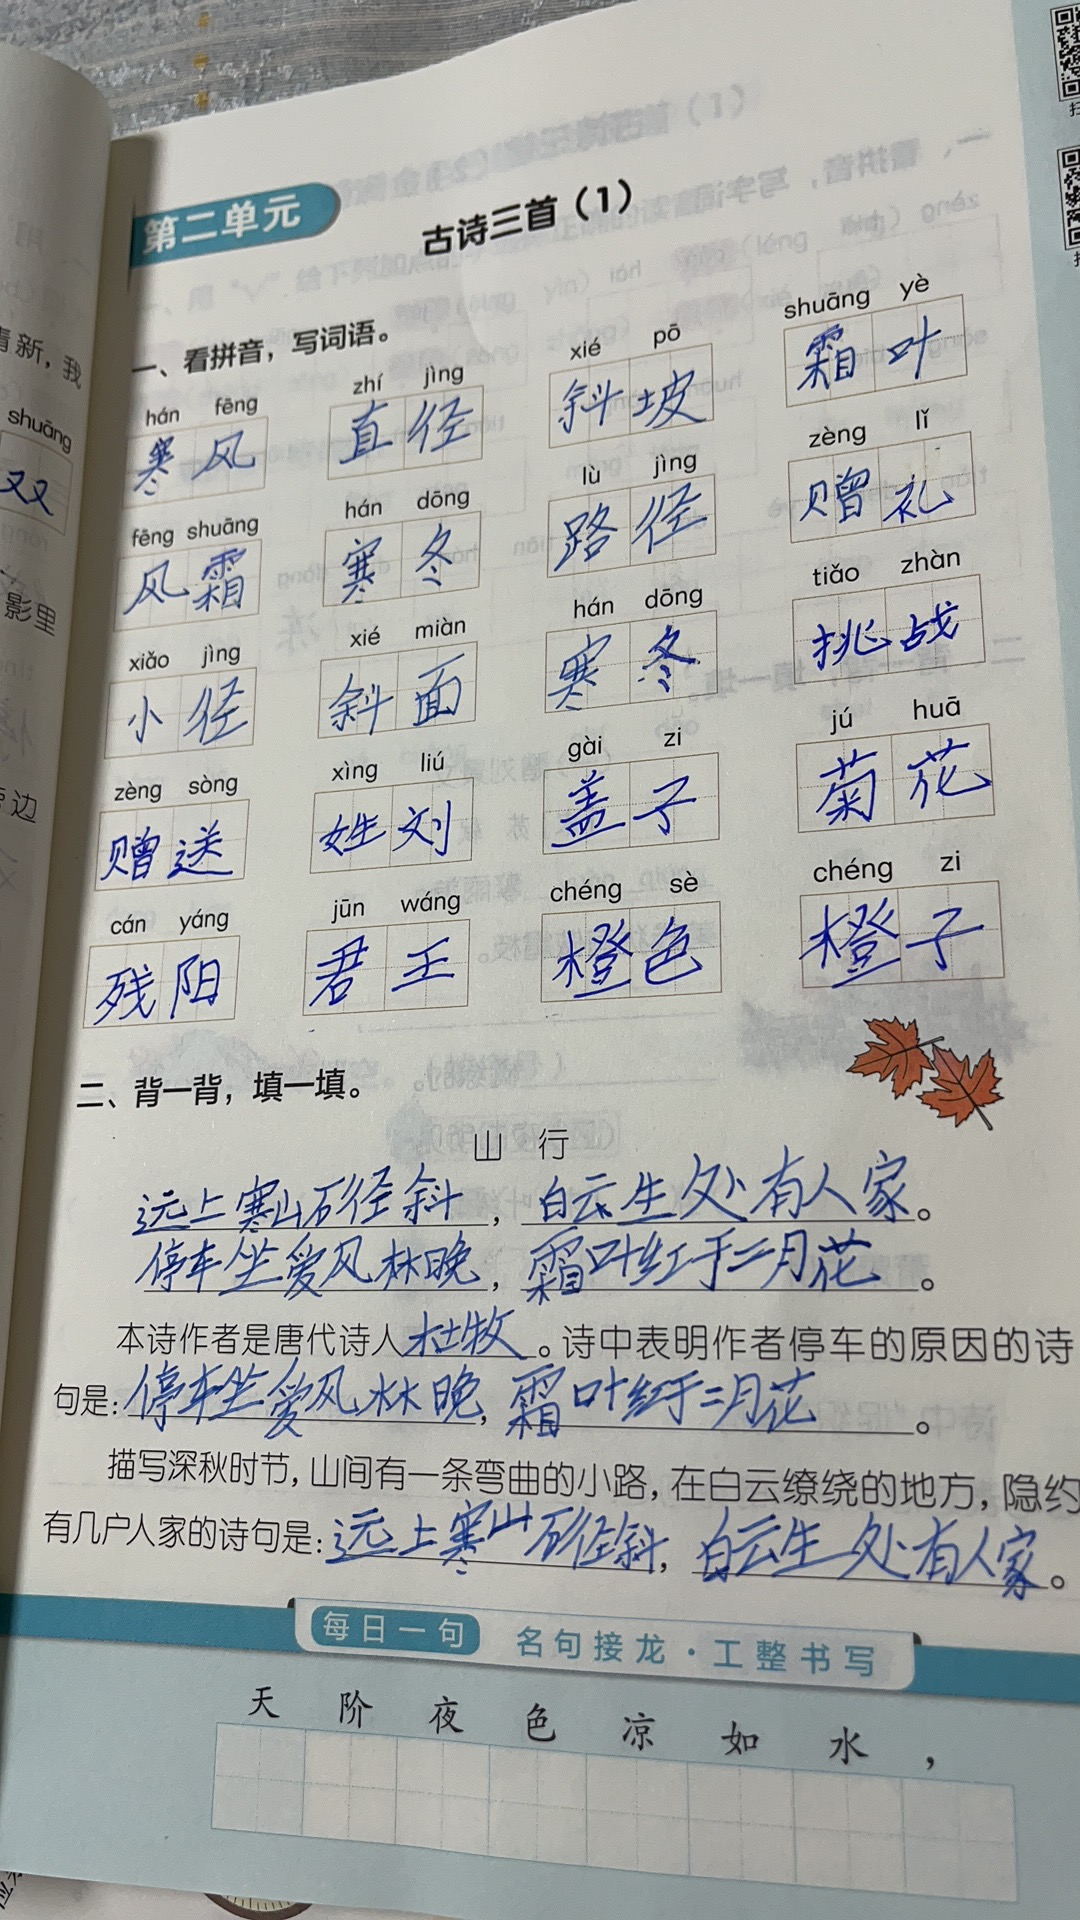 第二单元
古诗三首（1）
一、看拼音，写词语。
hán fēng zhí jìng xié pō shuāng yè
寒风 直径 斜坡 霜叶
fēng shuāng hán dōng lù jìng zèng lǐ
风霜 寒冬 路径 赠礼
xiǎo jìng xié miàn hán dōng tiǎo zhàn
小径 斜面 寒冬 挑战
zèng sòng xìng liú gài zi jú huā
赠送 姓刘 盖子 菊花
cán yáng jūn wáng chéng sè chéng zi
残阳 君王 橙色 橙子
二、背一背，填一填。
山 行
远上寒山石径斜，白云生处有人家。
停车坐爱风林晚，霜叶红于二月花。
本诗作者是唐代诗人杜牧。诗中表明作者停车的原因的诗
句是：停车坐爱风林晚，霜叶红于二月花。
描写深秋时节，山间有一条弯曲的小路，在白云缭绕的地方，隐约
有几户人家的诗句是：远上寒山石径斜，白云生处有人家。
每日一句 名句接龙·工整书写
天阶夜色凉如水，
清新，我
shuāng
双
影里
边